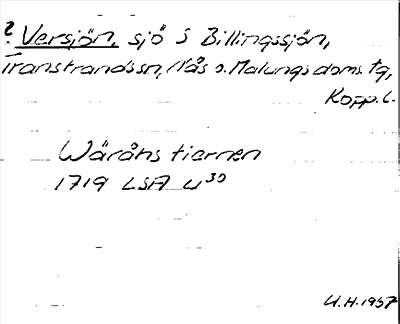 ? Versjön, sjö S Billingssjön,
Transtrandssn, Nås o. Malungs doms. tg,
Kopp. l.
Wäråhs tiernen
1719 LSA U³⁰
U.H. 1957